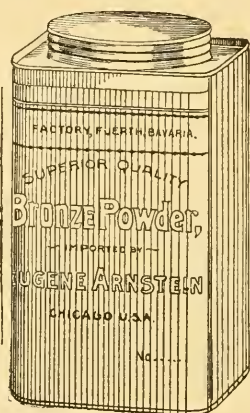 FACTORY, FUERTH, BAVARIA.
SUPERIOR QUALITY
Bronze Powder,
— IMPORTED BY —
EUGENE ARNSTEIN
CHICAGO U.S.A.
No.....